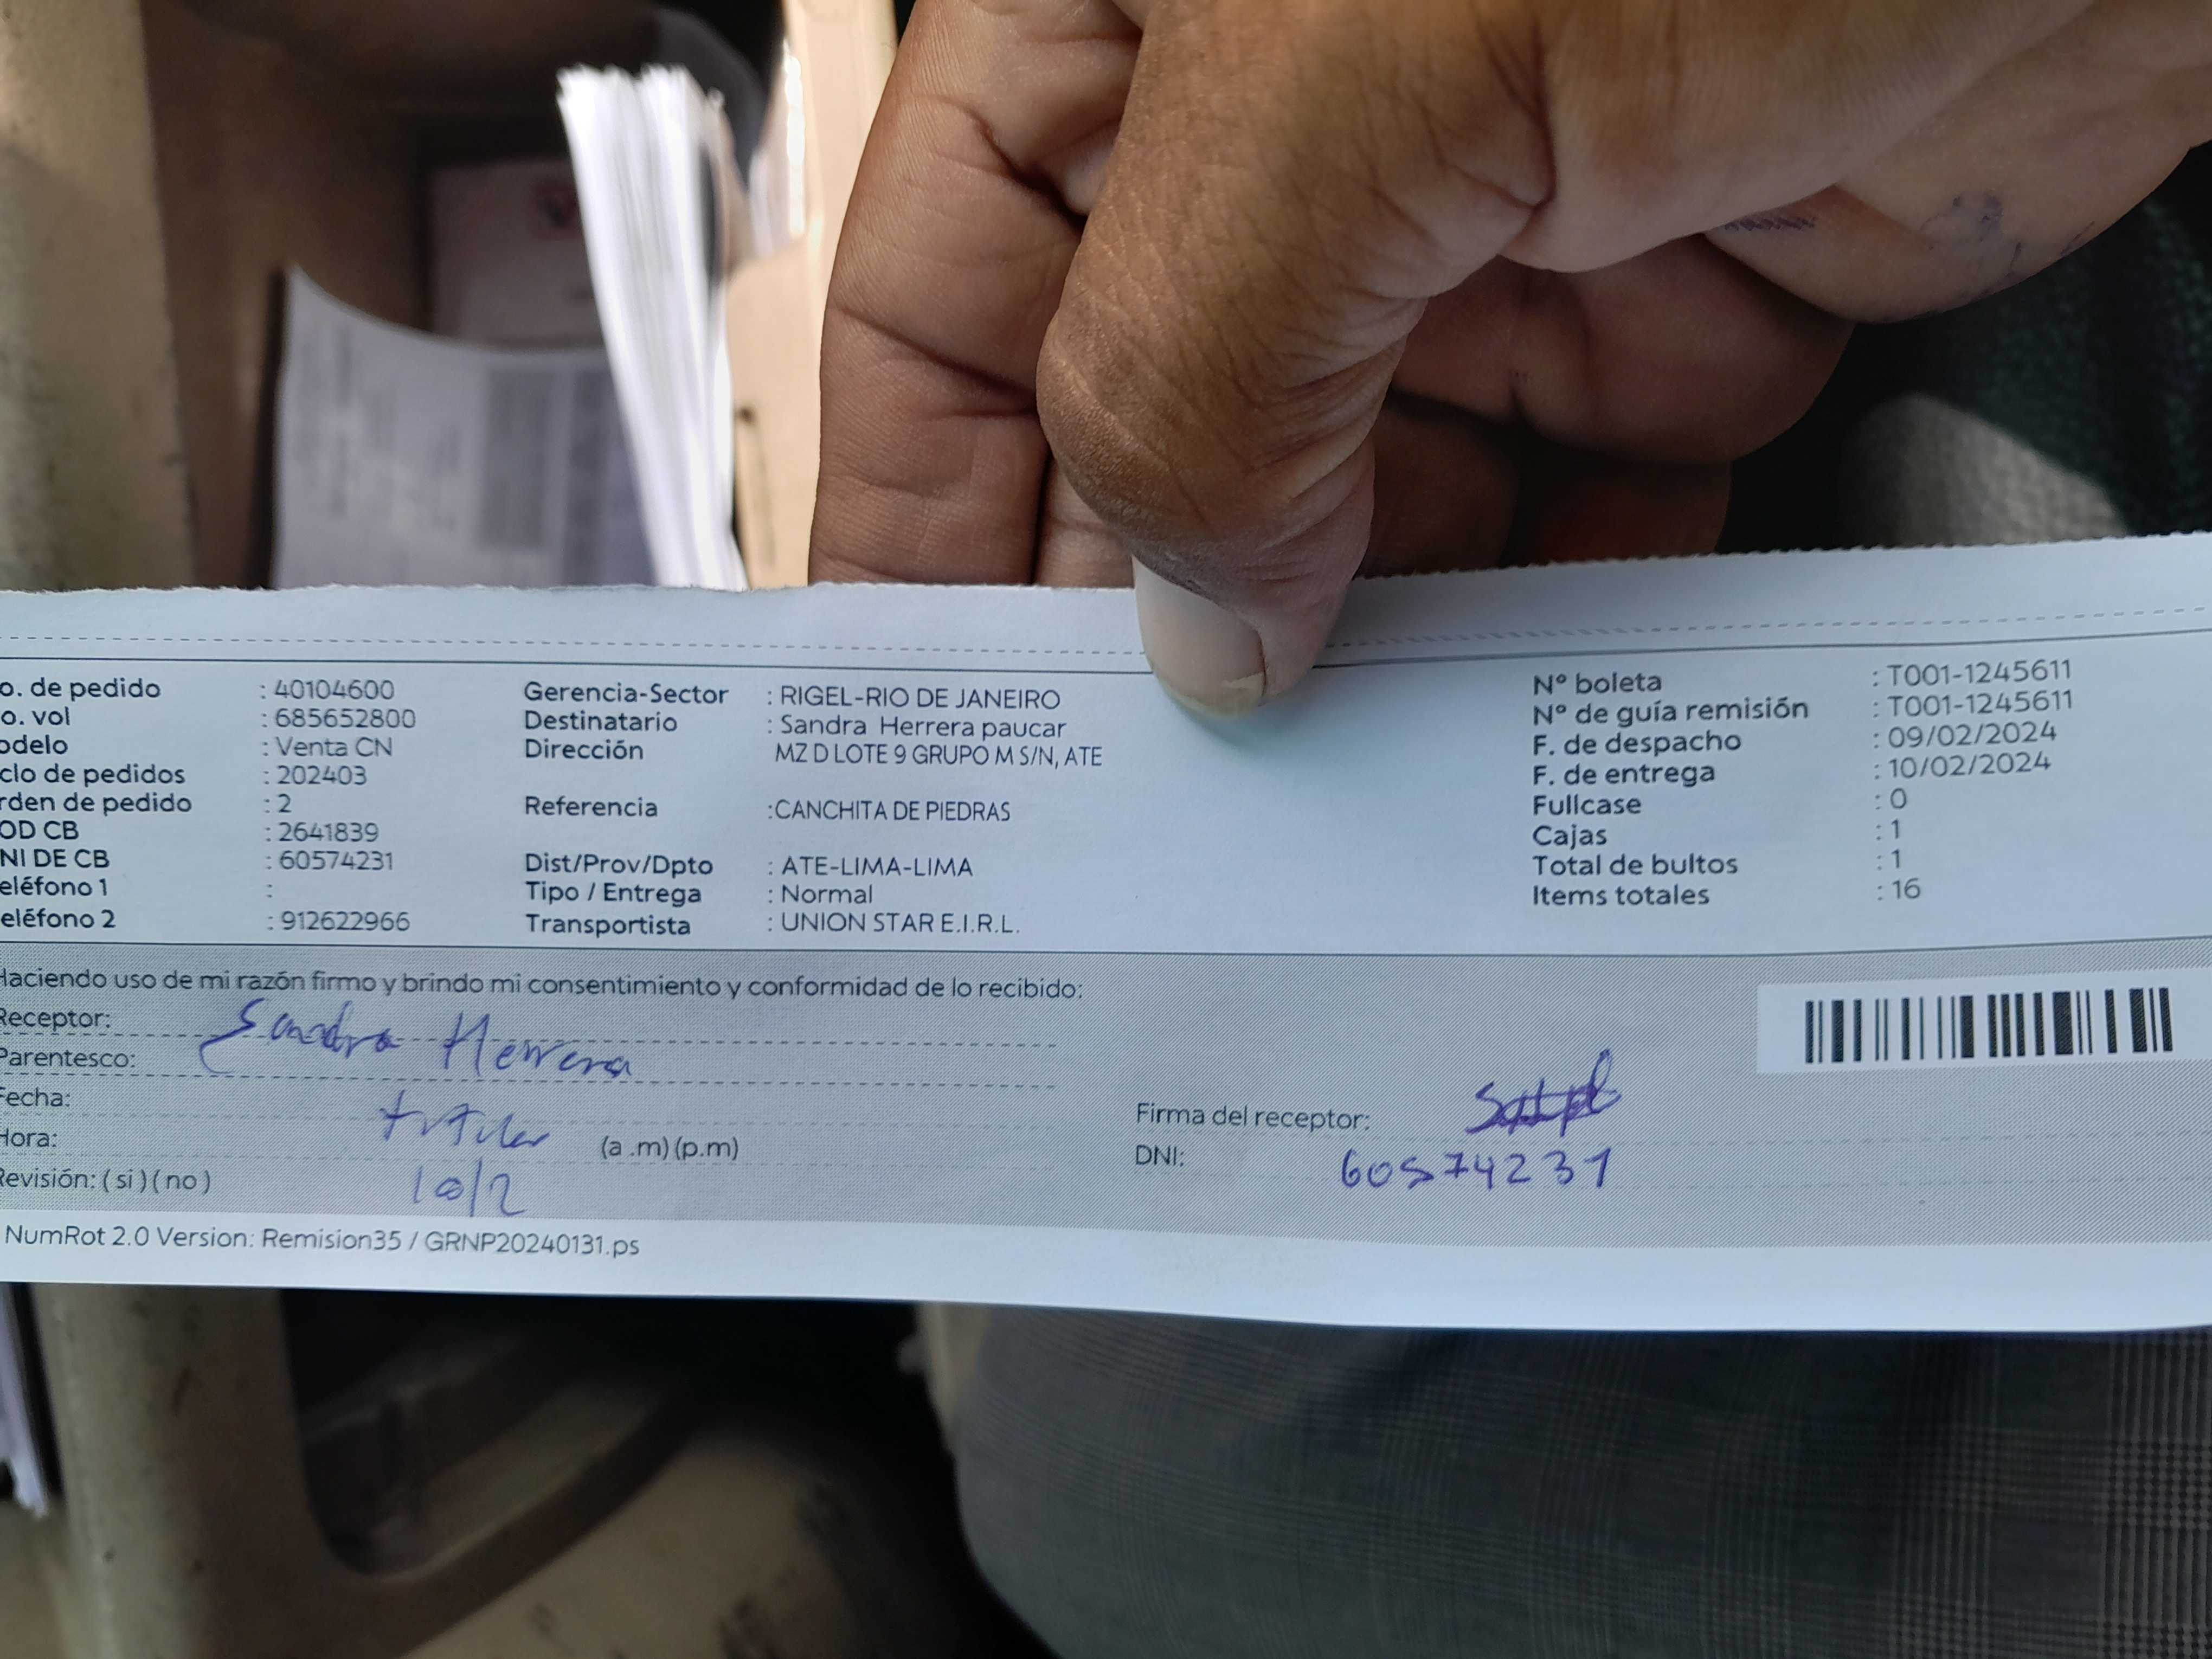 o. de pedido : 40104600
o. vol : 685652800
odelo : Venta CN
clo de pedidos : 202403
rden de pedido : 2
OD CB : 2641839
NI DE CB : 60574231
eléfono 1 :
eléfono 2 : 912622966
Gerencia-Sector : RIGEL-RIO DE JANEIRO
Destinatario : Sandra Herrera paucar
Dirección MZ D LOTE 9 GRUPO M S/N, ATE
Referencia :CANCHITA DE PIEDRAS
Dist/Prov/Dpto : ATE-LIMA-LIMA
Tipo / Entrega : Normal
Transportista : UNION STAR E.I.R.L.
Nº boleta : T001-1245611
Nº de guía remisión : T001-1245611
F. de despacho : 09/02/2024
F. de entrega : 10/02/2024
Fullcase : 0
Cajas : 1
Total de bultos : 1
Items totales : 16
Haciendo uso de mi razón firmo y brindo mi consentimiento y conformidad de lo recibido:
Receptor: Sandra Herrera
Parentesco:
Fecha: titular
Hora: (a .m) (p.m)
Revisión: ( si ) ( no ) 10/2
Firma del receptor:
DNI: 60574231
NumRot 2.0 Version: Remision35 / GRNP20240131.ps